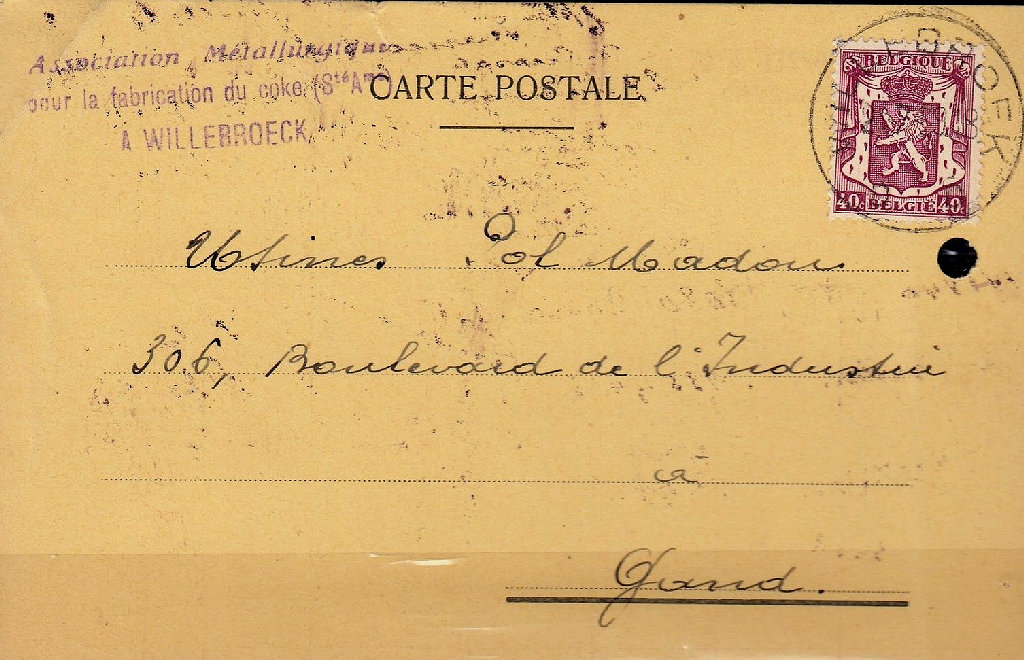 Association Métallurgique
pour la fabrication du coke (Sté Ame)
À WILLEBROECK
CARTE POSTALE
WILLEBROEK
BELGIQUE
40c BELGIE 40c
Usines Pol Madou
306, Boulevard de l'Industrie
à
Gand.